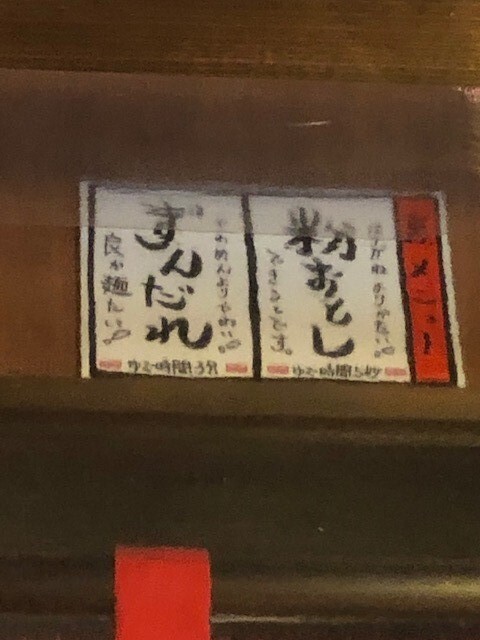 裏メニュー
はりがねよりかたい!!
粉おとし
できるとです。
ゆで時間5秒
やわめんよりやわい!!
ずんだれ
良か麺たい!!
ゆで時間3分